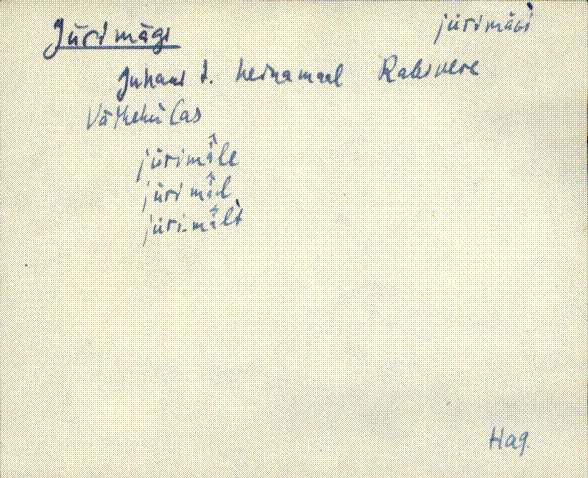 Jürimägi
jürimägì
Juhani t. heinamaal Rakvere
Vätkekülas
jürimä̂le
jürimä̂l
jürimä̂lt
Hag.